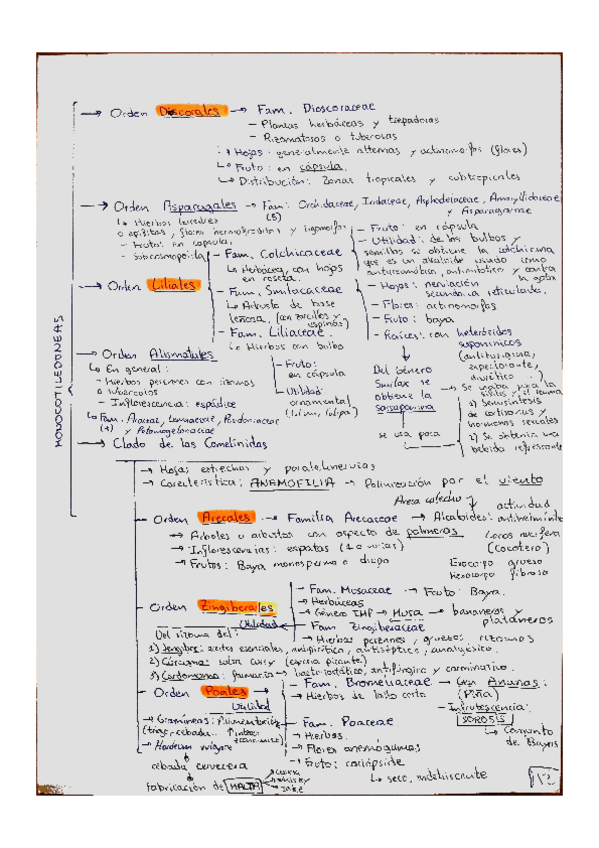 MONOCOTILEDONEAS
→ Orden Discorales → Fam. Dioscoraceae
- Plantas herbáceas y trepadoras
- Rizomatosas o tuberosas
↳ Hojas: generalmente alternas y actinomorfas (flores)
↳ Fruto: en cápsula
↳ Distribución: Zonas tropicales y subtropicales
→ Orden Asparagales → Fam: Orchidaceae, Iridaceae, Asphodelaceae, Amaryllidaceae y Asparagaceae
(5)
↳ Hierbas terrestres
o epífitas, flores hermafroditas y zigomorfas
- Frutos: en cápsula
- Subcosmopolita
→ Orden Liliales
- Fam. Colchicaceae
↳ Herbáceas, con hojas
en roseta.
- Fruto: en cápsula
- Utilidad: de los bulbos y
semillas se obtiene la colchicina
que es un alcaloide usado como
antirreumático, antimitótico y contra
la gota
- Fam. Smilacaceae
↳ Arbusto de base
leñosa. (con zarcillos y
espinas)
- Hojas: nerviación
secundaria reticulada.
- Flores: actinomorfas
- Fruto: baya
- Raíces: con heterósidos
saponínicos
(antifúngica,
expectorante,
diurético...)
Del género
Smilax se
obtiene la
sarsaponina
se usa para
→ Se usaba para la
sífilis y el reuma
1) Semisíntesis
de cortisonas y
hormonas sexuales
2) Se obtenía una
bebida refrescante
- Fam. Liliaceae
↳ Hierbas con bulbo
- Fruto:
en cápsula
- Utilidad:
ornamental
(lilium, tulipa)
→ Orden Alismatales
↳ En general:
- Hierbas perennes con rizomas
o tubérculos
- Inflorescencia: espádice
↳ Fam. Araceae, Lemnaceae,
y Potamogetonaceae
→ Clado de las Comelínidas
→ Hojas estrechas y paralelinervias
→ Característica: ANAMOFILIA → Polinización por el viento
→ Orden Arecales → Familia Arecaceae → Alcaloides: actividad antihelmíntica
Areca catechu
→ Árboles o arbustos con aspecto de palmeras
→ Inflorescencias: espatas (1 o varias)
→ Frutos: Baya monosperma o drupa
Cocos nucifera
(Cocotero)
Exocarpo grueso
Mesocarpo fibroso
- Orden Zingiberales
- Fam. Musaceae → Fruto: Baya.
→ Herbáceas
→ Género IMP → Musa → bananeros y
plataneros
- Fam Zingiberaceae
→ Hierbas perennes, grandes, rizomas
Utilidad
Del rizoma del:
1) Jengibre: aceites esenciales, antipirético, antiséptico, analgésico.
2) Cúrcuma: salsa curry (especia picante)
3) Cardamomo: farmacia → bacteriostático, antifúngico y carminativo.
- Orden Poales →
- Fam. Bromeliaceae → Gen Ananas:
(Piña)
→ Hierbas de tallo corto
- Infrutescencia:
SOROSIS
↳ Conjunto
de Bayas
Utilidad
→ Gramíneas: Alimentación
(trigo, cebada...
→ Hordeum vulgare
cebada cervecera
fabricación de MALTA
whisky
- Fam. Poaceae
→ Hierbas.
→ Flores anemógamas
→ Fruto: cariópside
↳ seco, indehiscente
12